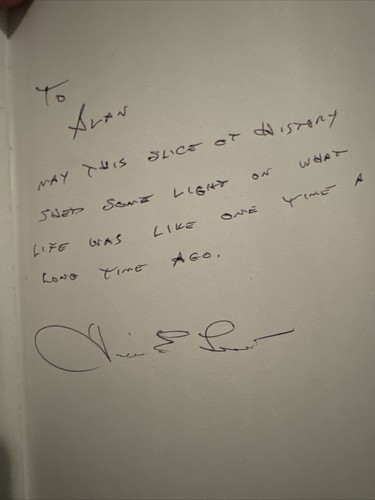 To
Alan
May this slice of History
shed some light on what
life was like one time a
long time ago.